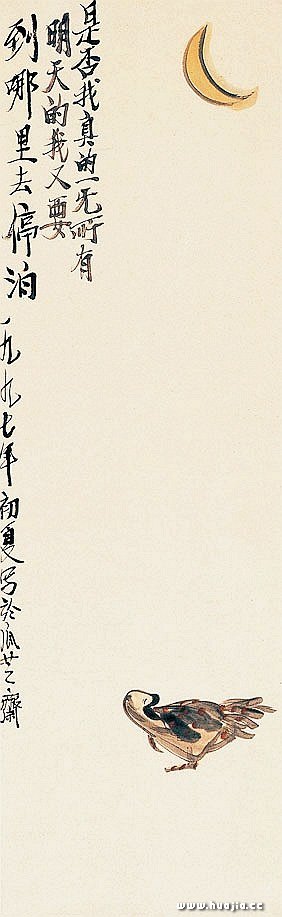 是否我真的一无所有
明天的我又要
到哪里去停泊 一九九七年初夏写於 齋
www.huajia.cc